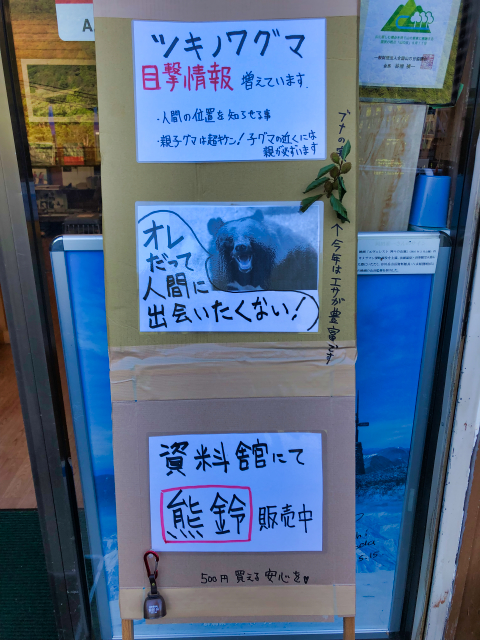 ツキノワグマ
目撃情報 増えています.
・人間の位置を知らせる事
・親子グマは超ヤバン! 子グマの近くには
親が必ずいます
ブナの
↑今年はエサが豊富です
オレ
だって
人間に
出会いたくない!
資料館にて
熊鈴 販売中
500円 買える 安心を♥